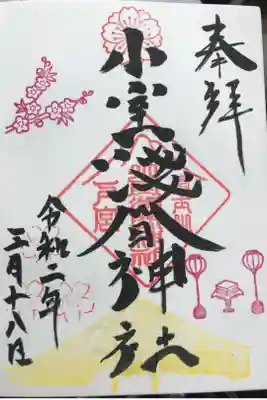 奉拝
小室浅間神社
令和二年
三月十八日